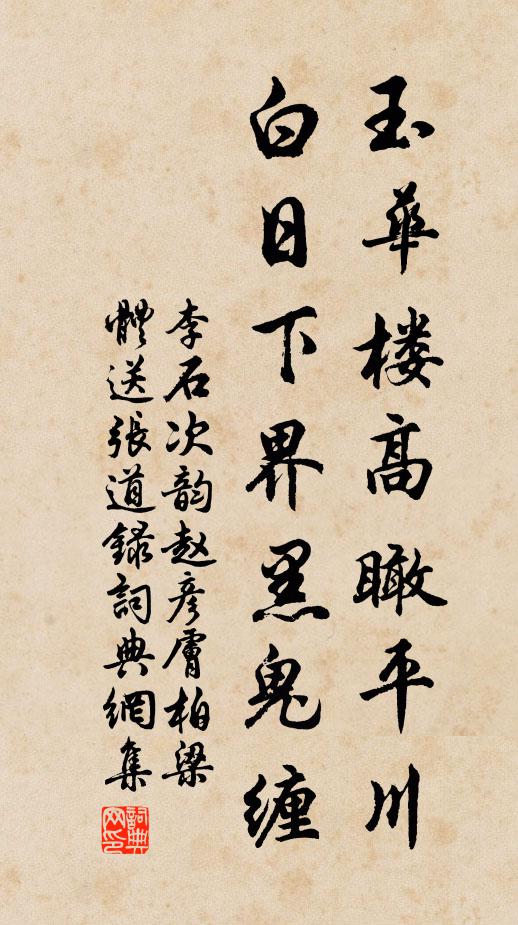 玉華楼高瞰平川
白日下界黑鬼缠
李石次韵赵彦膚柏梁
體送張道錄詞典網集
詞典网印